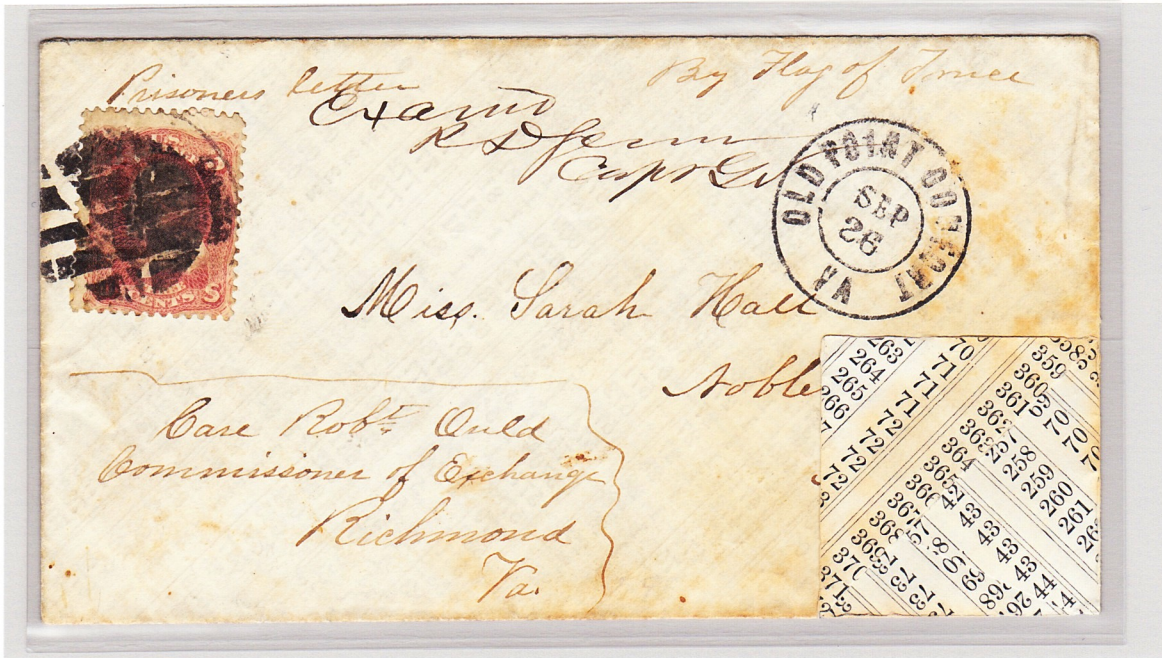 Prisoners letter By Flag of Truce
Exam'd
Capt
OLD POINT COMFORT
VA
SEP
26
CENTS
Miss. Sarah Hall
Noble
Care Robt Ould
Commissioner of Exchange
Richmond
Va.
263
264
265
266
70
71
71
71
72
72
72
72
359
360
361
362
363
364
365
366
367
368
369
370
371
257
258
259
260
261
70
70
43
43
43
43
44
44
69